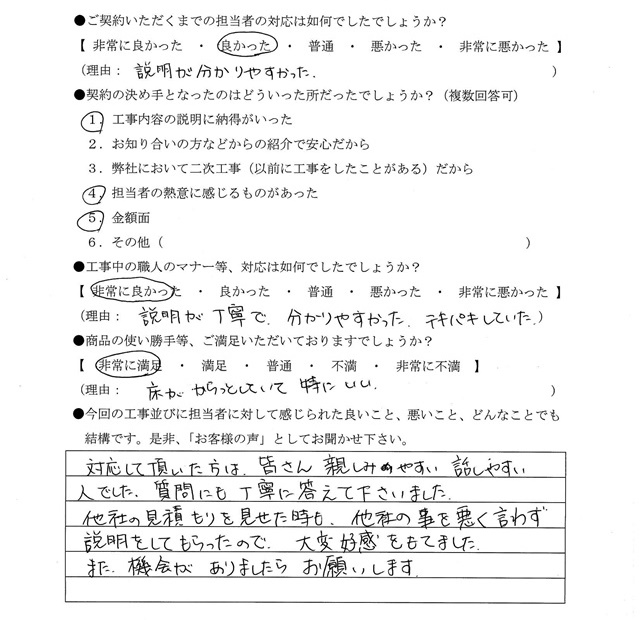 ●ご契約いただくまでの担当者の対応は如何でしたでしょうか？
【 非常に良かった ・ 良かった ・ 普通 ・ 悪かった ・ 非常に悪かった 】
（理由： 説明が分かりやすかった. ）
●契約の決め手となったのはどういった所だったでしょうか？（複数回答可）
１．工事内容の説明に納得がいった
２．お知り合いの方などからの紹介で安心だから
３．弊社において二次工事（以前に工事をしたことがある）だから
４．担当者の熱意に感じるものがあった
５．金額面
６．その他（ ）
●工事中の職人のマナー等、対応は如何でしたでしょうか？
【 非常に良かった ・ 良かった ・ 普通 ・ 悪かった ・ 非常に悪かった 】
（理由： 説明が丁寧で、分かりやすかった. テキパキしていた. ）
●商品の使い勝手等、ご満足いただいておりますでしょうか？
【 非常に満足 ・ 満足 ・ 普通 ・ 不満 ・ 非常に不満 】
（理由： 床が していて 特にいい. ）
●今回の工事並びに担当者に対して感じられた良いこと、悪いこと、どんなことでも
結構です。是非、「お客様の声」としてお聞かせ下さい。
対応して頂いた方は、皆さん 親しみやすい 話しやすい
人でした. 質問にも丁寧に答えて下さいました.
他社の見積もりを見せた時も、他社の事を悪く言わず
説明をしてもらったので、大変好感をもてました.
また、機会がありましたら お願いします.